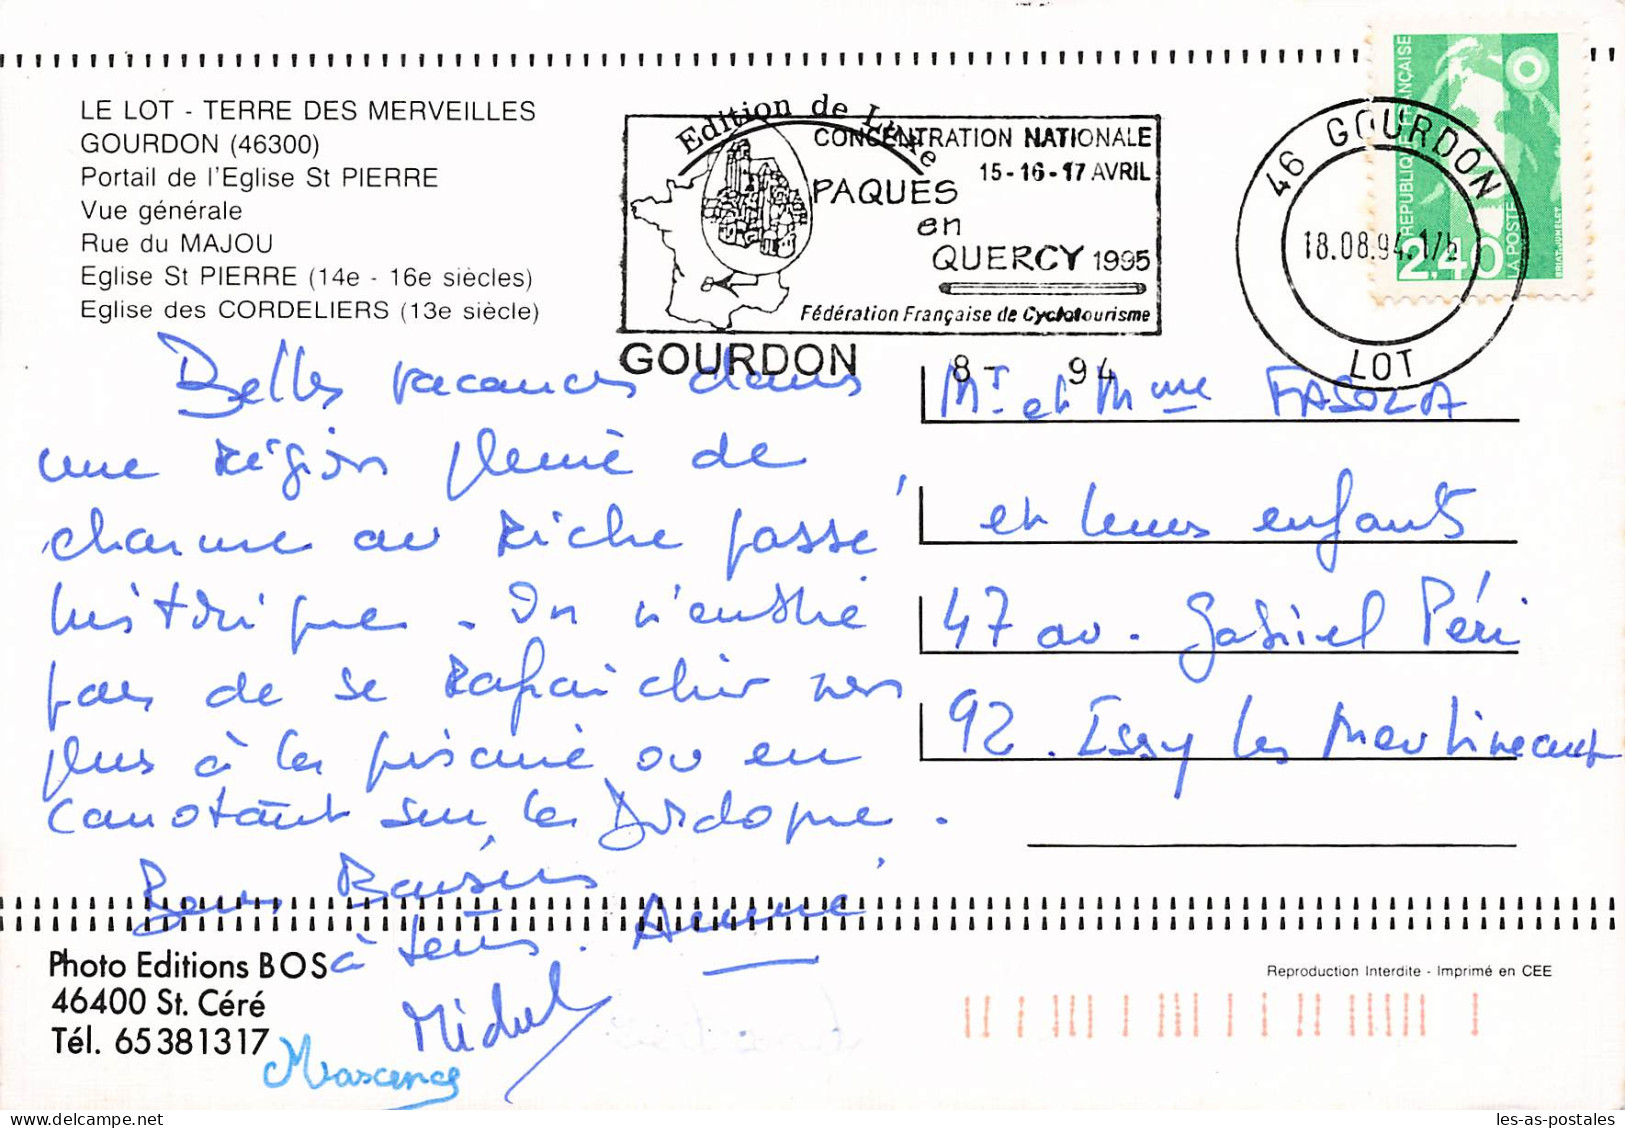 LE LOT - TERRE DES MERVEILLES
GOURDON (46300)
Portail de l'Eglise St PIERRE
Vue générale
Rue du MAJOU
Eglise St PIERRE (14e - 16e siècles)
Eglise des CORDELIERS (13e siècle)
Edition de Luxe
CONCENTRATION NATIONALE
15-16-17 AVRIL
PAQUES
en
QUERCY 1995
Fédération Française de Cyclotourisme
GOURDON
8 - 94
46 GOURDON
18.08.94
LOT
REPUBLIQUE FRANÇAISE
2,40
LA POSTE
BRIAT-JUMELET
Belles vacances dans
une région pleine de
charme au riche passé
historique. On n'oublie
pas de se rafraichir non
plus à la piscine ou en
canotant sur la Dordogne.
Bons Baisers
à tous. Annie
Michel
Mr et Mme FASOLA
et leurs enfants
47 av. Gabriel Péri
92. Issy les Moulineaux
Photo Editions BOS
46400 St. Céré
Tél. 65381317
Reproduction Interdite - Imprimé en CEE
les-as-postales